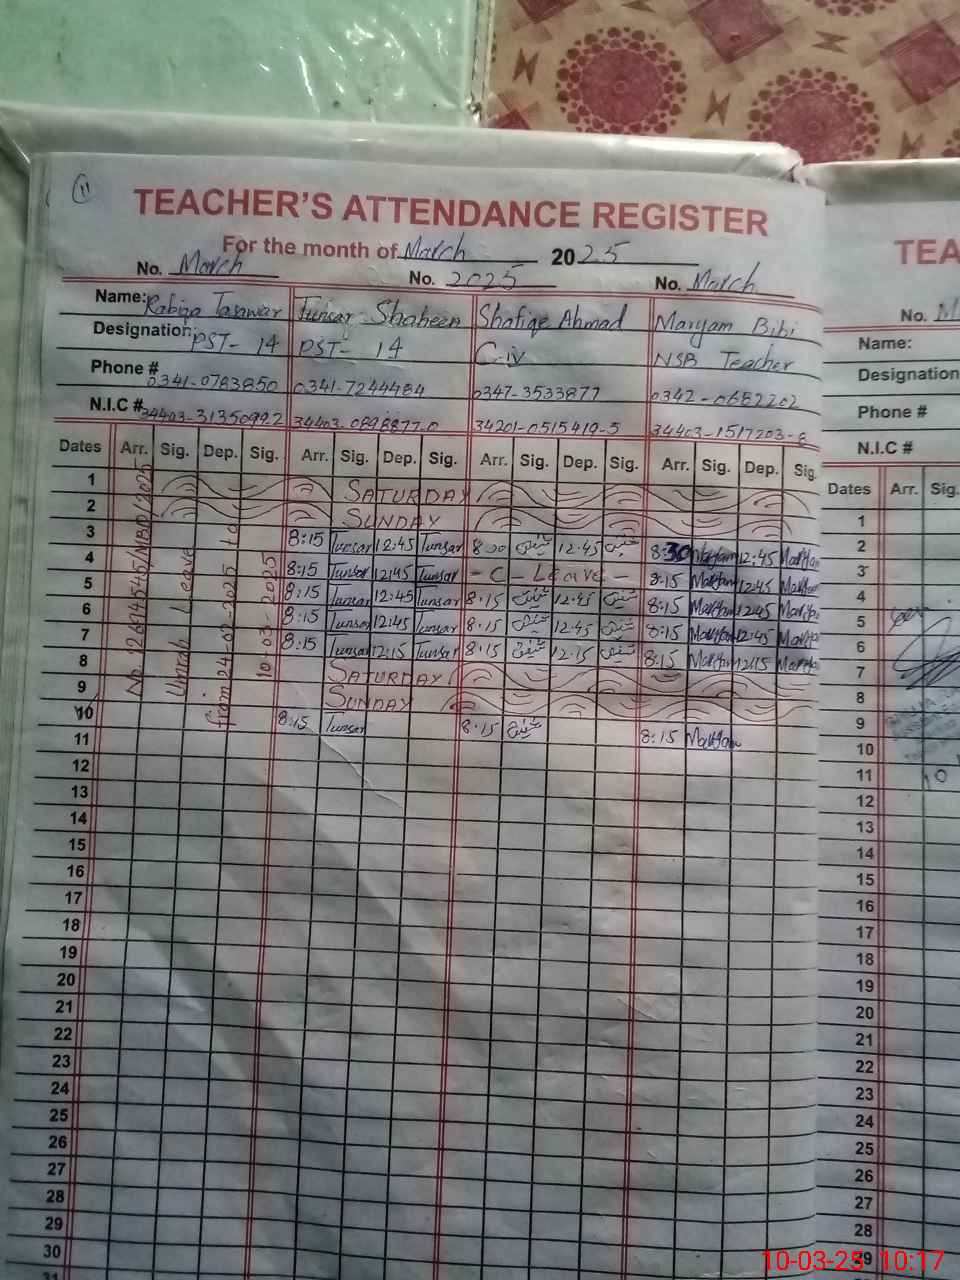 11
TEACHER'S ATTENDANCE REGISTER
For the month of March 2025
No. March No. 2025 No. March
Name: Rabiqa Tasawar Tunsar Shaheen Shafiqe Ahmad Maryam Bibi
Designation: PST- 14 PST- 14 C-iv NSB Teacher
Phone # 0341-0783850 0341-7244484 0347-3533877 0342-0682202
N.I.C # 34403-3135099.2 34403.0898877-0 34201-0515419-5 34403-1517203-8
Dates Arr. Sig. Dep. Sig. Arr. Sig. Dep. Sig. Arr. Sig. Dep. Sig. Arr. Sig. Dep. Sig.
Umrah Leave
from 24-02-2025 to
10-03-2025
1 SATURDAY
2 SUNDAY
3 8:15 Tunsar 12:45 Tunsar 8:30 شفیق 12:45 شفیق 8:30 Maryam 12:45 Maryam
4 8:15 Tunsar 12:45 Tunsar - C - Leave - 8:15 Maryam 12:45 Maryam
5 8:15 Tunsar 12:45 Tunsar 8:15 شفیق 12:45 شفیق 8:15 Maryam 12:45 Maryam
6 8:15 Tunsar 12:45 Tunsar 8:15 شفیق 12:45 شفیق 8:15 Maryam 12:45 Maryam
7 8:15 Tunsar 12:15 Tunsar 8:15 شفیق 12:15 شفیق 8:15 Maryam 12:15 Maryam
8 SATURDAY
9 SUNDAY
10 8:15 Tunsar 8:15 شفیق 8:15 Maryam
11
12
13
14
15
16
17
18
19
20
21
22
23
24
25
26
27
28
29
30
31
TEA
No. M
Name:
Designation
Phone #
N.I.C #
Dates Arr. Sig.
1
2
3
4
5
6
7
8
9
10
11
12
13
14
15
16
17
18
19
20
21
22
23
24
25
26
27
28
29
10-03-25 10:17